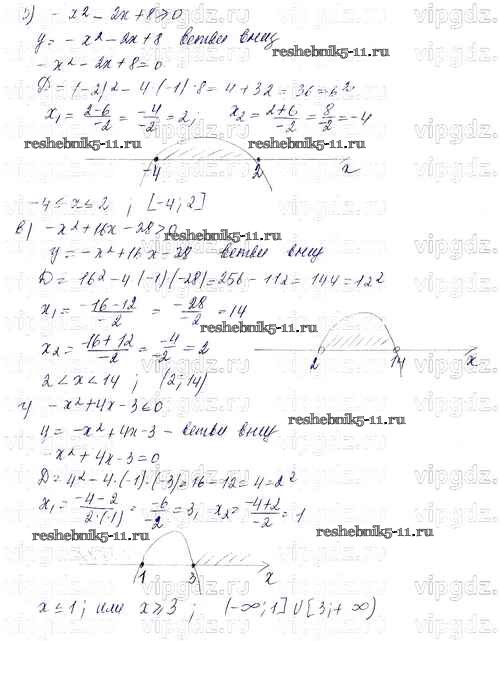 б) -x² - 2x + 8 ≥ 0
y = -x² - 2x + 8 ветви вниз
-x² - 2x + 8 = 0
D = (-2)² - 4 (-1) · 8 = 4 + 32 = 36 = 6²
x₁ = (2-6)/-2 = -4/-2 = 2, x₂ = (2+6)/-2 = 8/-2 = -4
-4 2 x
-4 ≤ x ≤ 2 ; [-4; 2]
в) -x² + 16x - 28 > 0
y = -x² + 16x - 28 ветви вниз
D = 16² - 4 (-1) (-28) = 256 - 112 = 144 = 12²
x₁ = (-16-12)/-2 = -28/-2 = 14
x₂ = (-16+12)/-2 = -4/-2 = 2
2 14 x
2 < x < 14 ; (2; 14)
г) -x² + 4x - 3 ≤ 0
y = -x² + 4x - 3 - ветви вниз
-x² + 4x - 3 = 0
D = 4² - 4 · (-1) · (-3) = 16 - 12 = 4 = 2²
x₁ = (-4-2)/2·(-1) = -6/-2 = 3, x₂ = (-4+2)/-2 = 1
1 3 x
x ≤ 1; или x ≥ 3 ; (-∞; 1] U [3; +∞)
reshebnik5-11.ru
vipgdz.ru